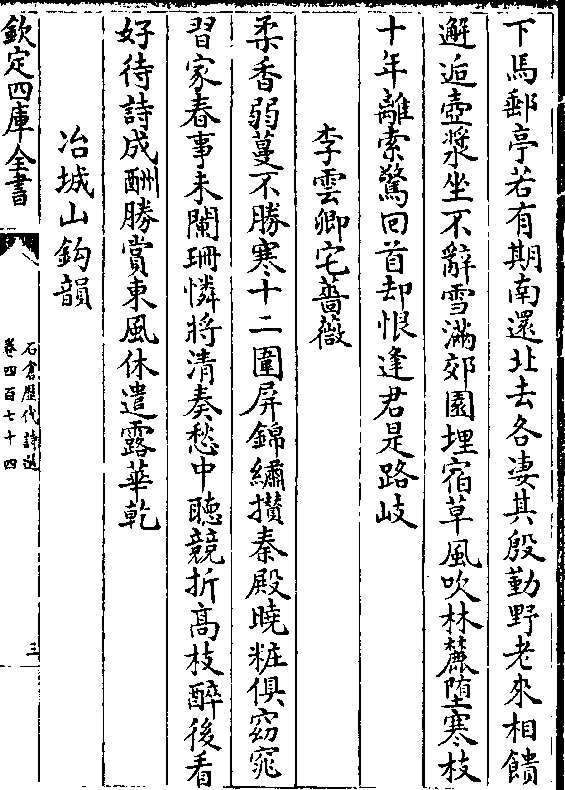 下馬郵亭若有期南還北去各凄其殷勤野老來相饋
邂逅壺漿坐不辭雪滿郊園埋宿草風吹林麓堕寒枝
十年離索驚回首却恨逢君是路岐
李雲卿宅薔薇
柔香弱蔓不勝寒十二圍屏錦繡攅秦殿曉粧俱窈窕
習家春事未闌珊憐將清奏愁中聽競折高枝醉後看
好待詩成酬勝賞東風休遣露華乾
冶城山鈎韻
欽定四庫全書
石倉歴代詩選
卷四百七十四
三